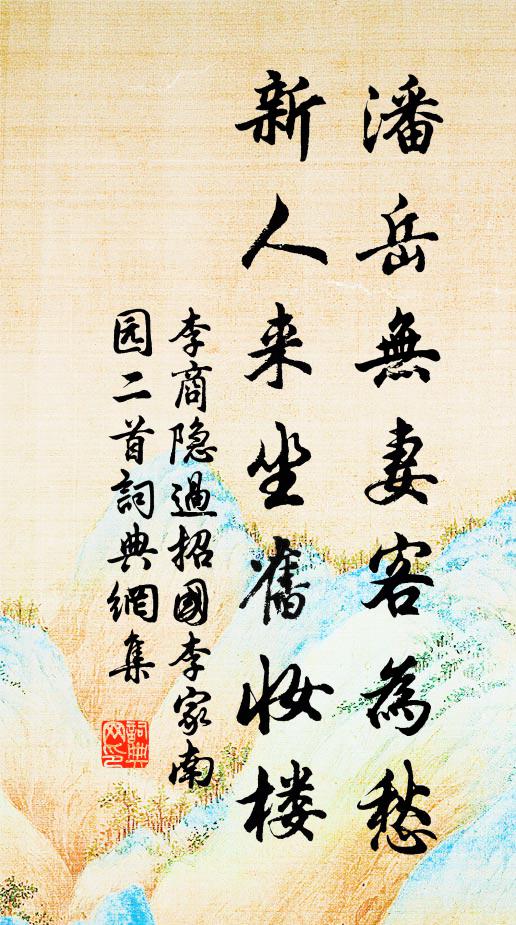 潘岳無妻客為愁
新人来坐舊妆楼
李商隐過招國李家南
园二首詞典網集
詞典
网印